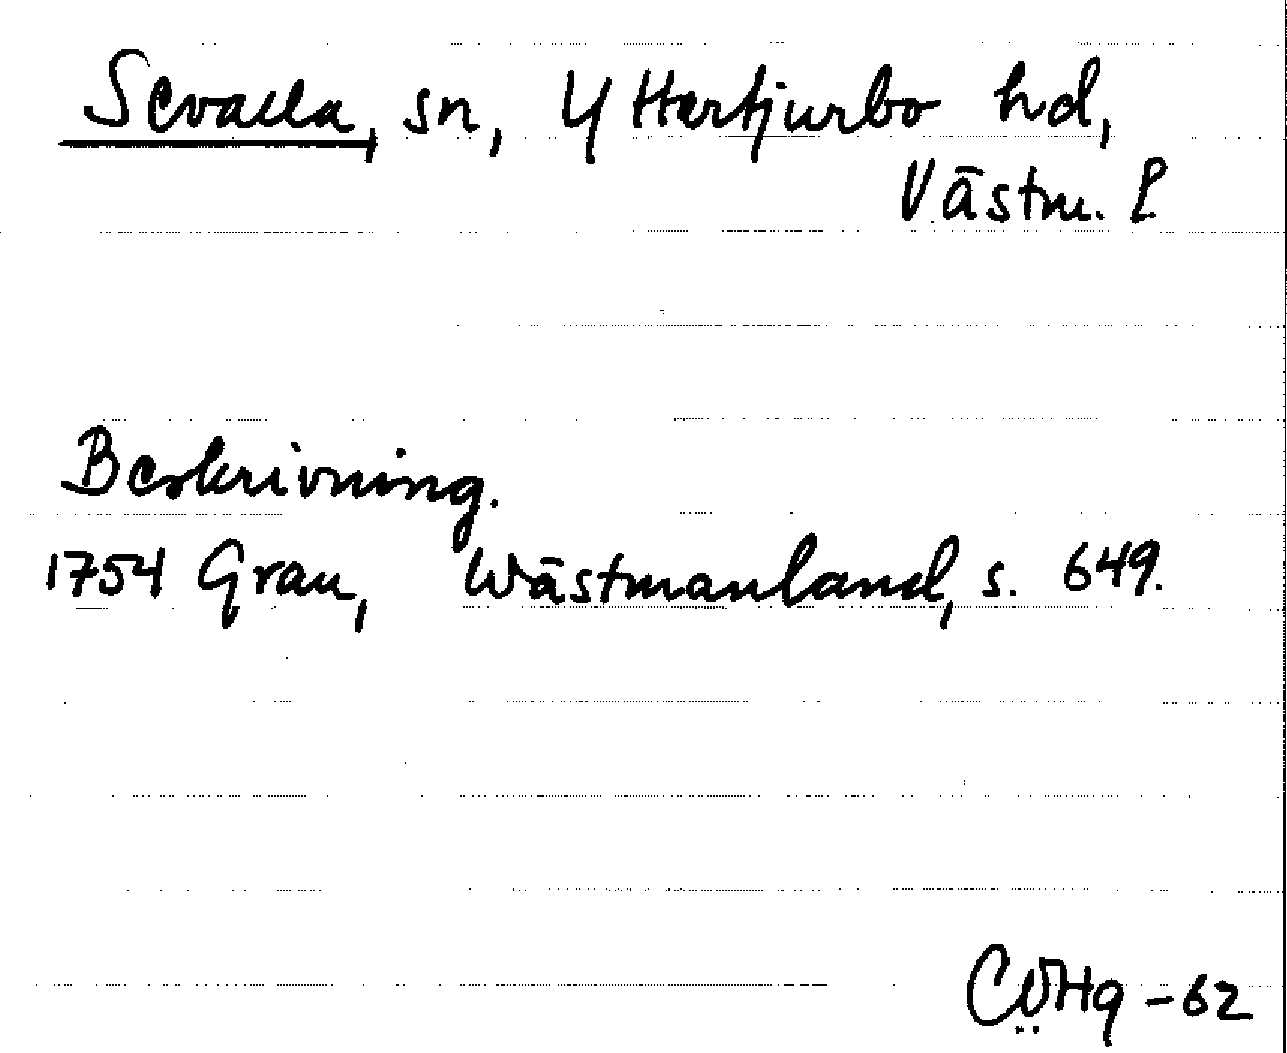 Sevalla, sn, Yttertjurbo hd,
Västm. l.
Beskrivning.
1754 Grau, Wästmanland, s. 649.
-62